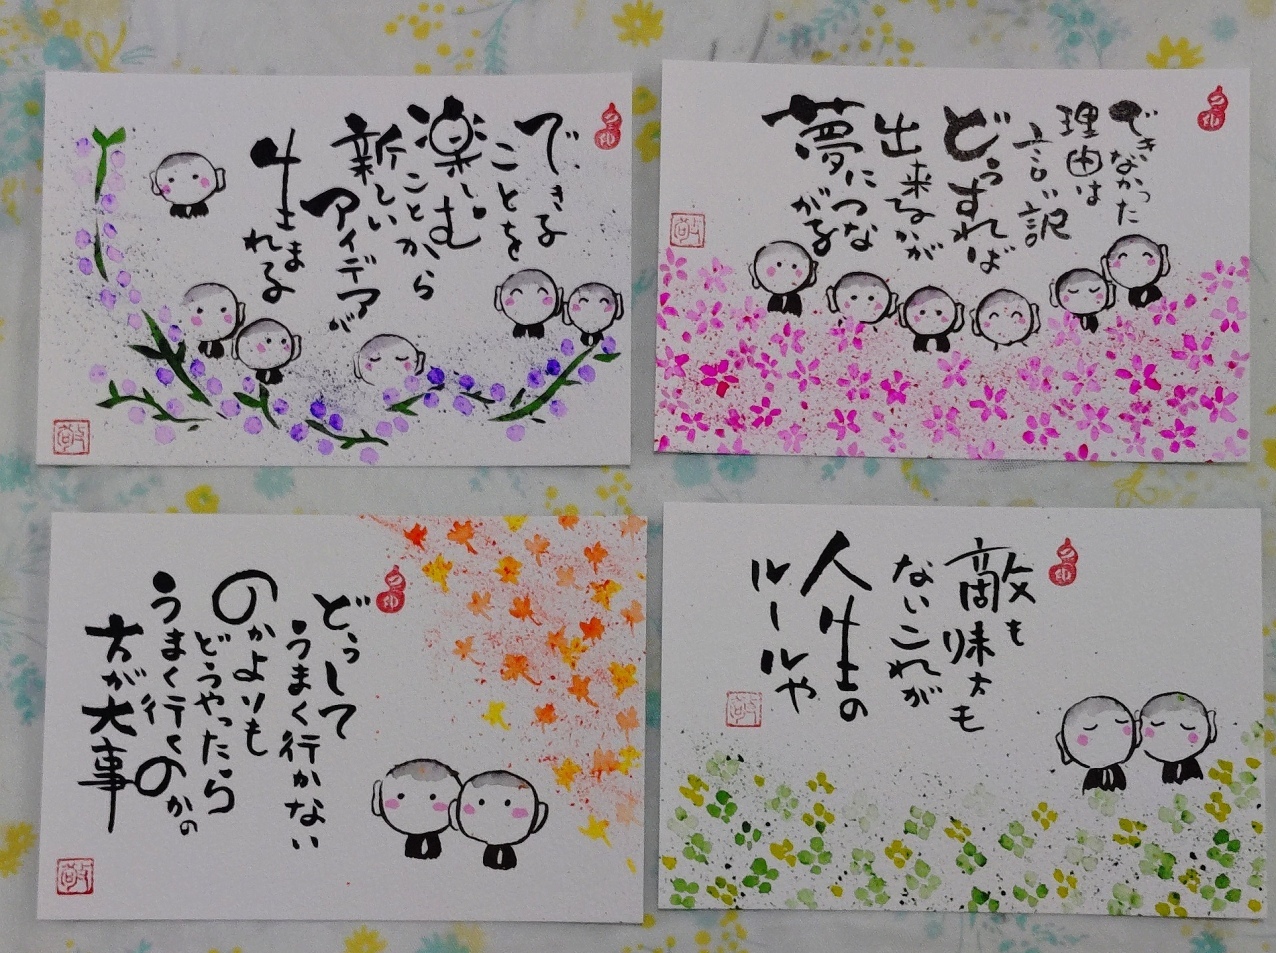 できる
ことを
楽しむ
ことから
新しい
アイデアが
生まれる
できなかった
理由は
言い訳
どうすれば
出来るかが
夢につな
がる
どうして
うまく行かない
のかよりも
どうやったら
うまく行くのかの
方が大事
敵も
味方も
ないこれが
人生の
ルールや